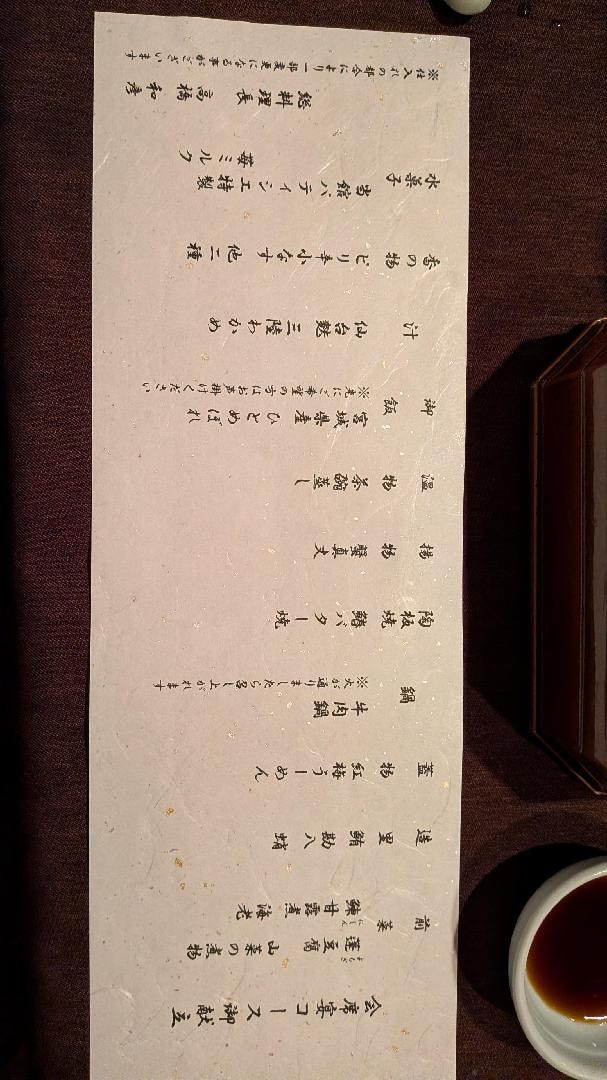 会席宴コース御献立
前菜
蓬豆腐 山菜の煮物
よもぎ
鰊甘露煮 海老
にしん
造里 鮪 勘八 蛸
蓋物 紅梅うーめん
鍋 牛肉鍋
※火が通りましたら召し上がれます
陶板焼 鰆バター焼
揚物 蟹真丈
温物 茶碗蒸し
御飯 宮城県産ひとめぼれ
※先にご希望の方はお声掛けください
汁 仙台麩 三陸わかめ
香の物 ピリ辛小なす 他二種
水菓子 当館パティシエ特製
苺ミルク
総料理長 高橋 和彦
※仕入れの都合により一部変更になる事がございます